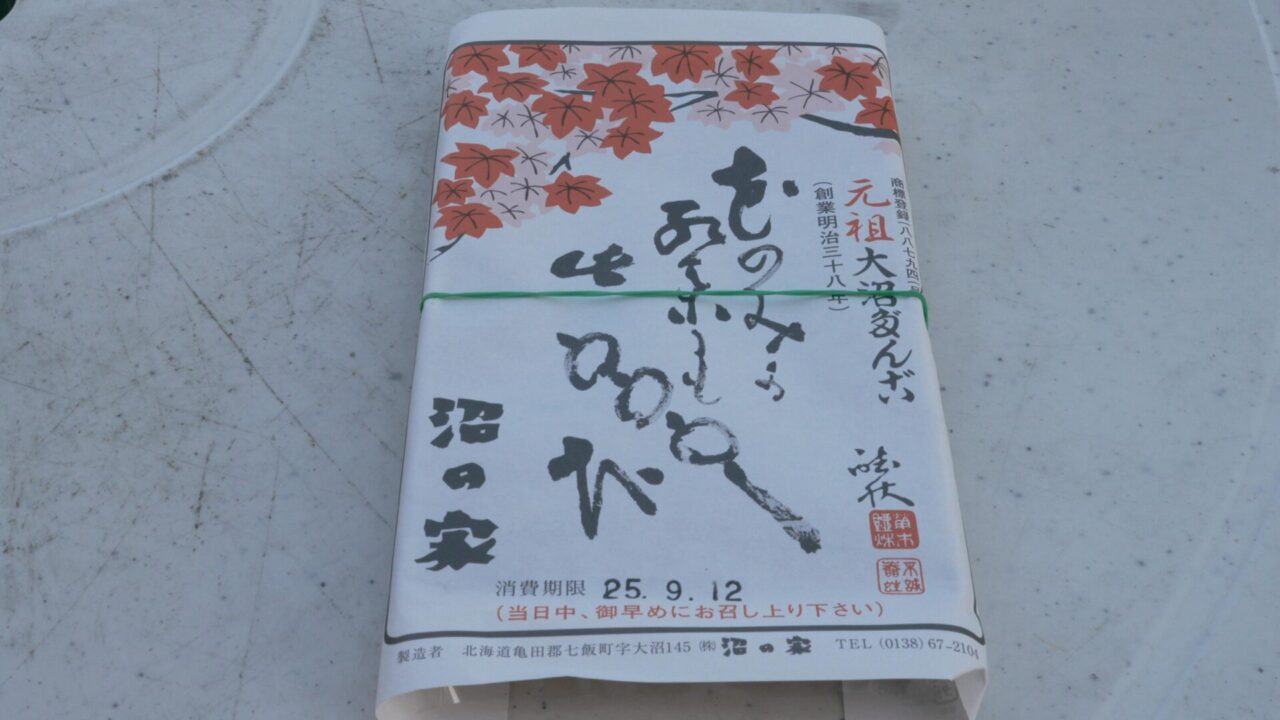 商標登録(八八七九四
元祖大沼だんご
(創業明治三十八年)
花のみか
紅葉も
此
沼の家
消費期限 25. 9. 12
(当日中、御早めにお召し上り下さい)
製造者 北海道亀田郡七飯町字大沼145 ㈱ 沼の家 TEL (0138) 67-2104